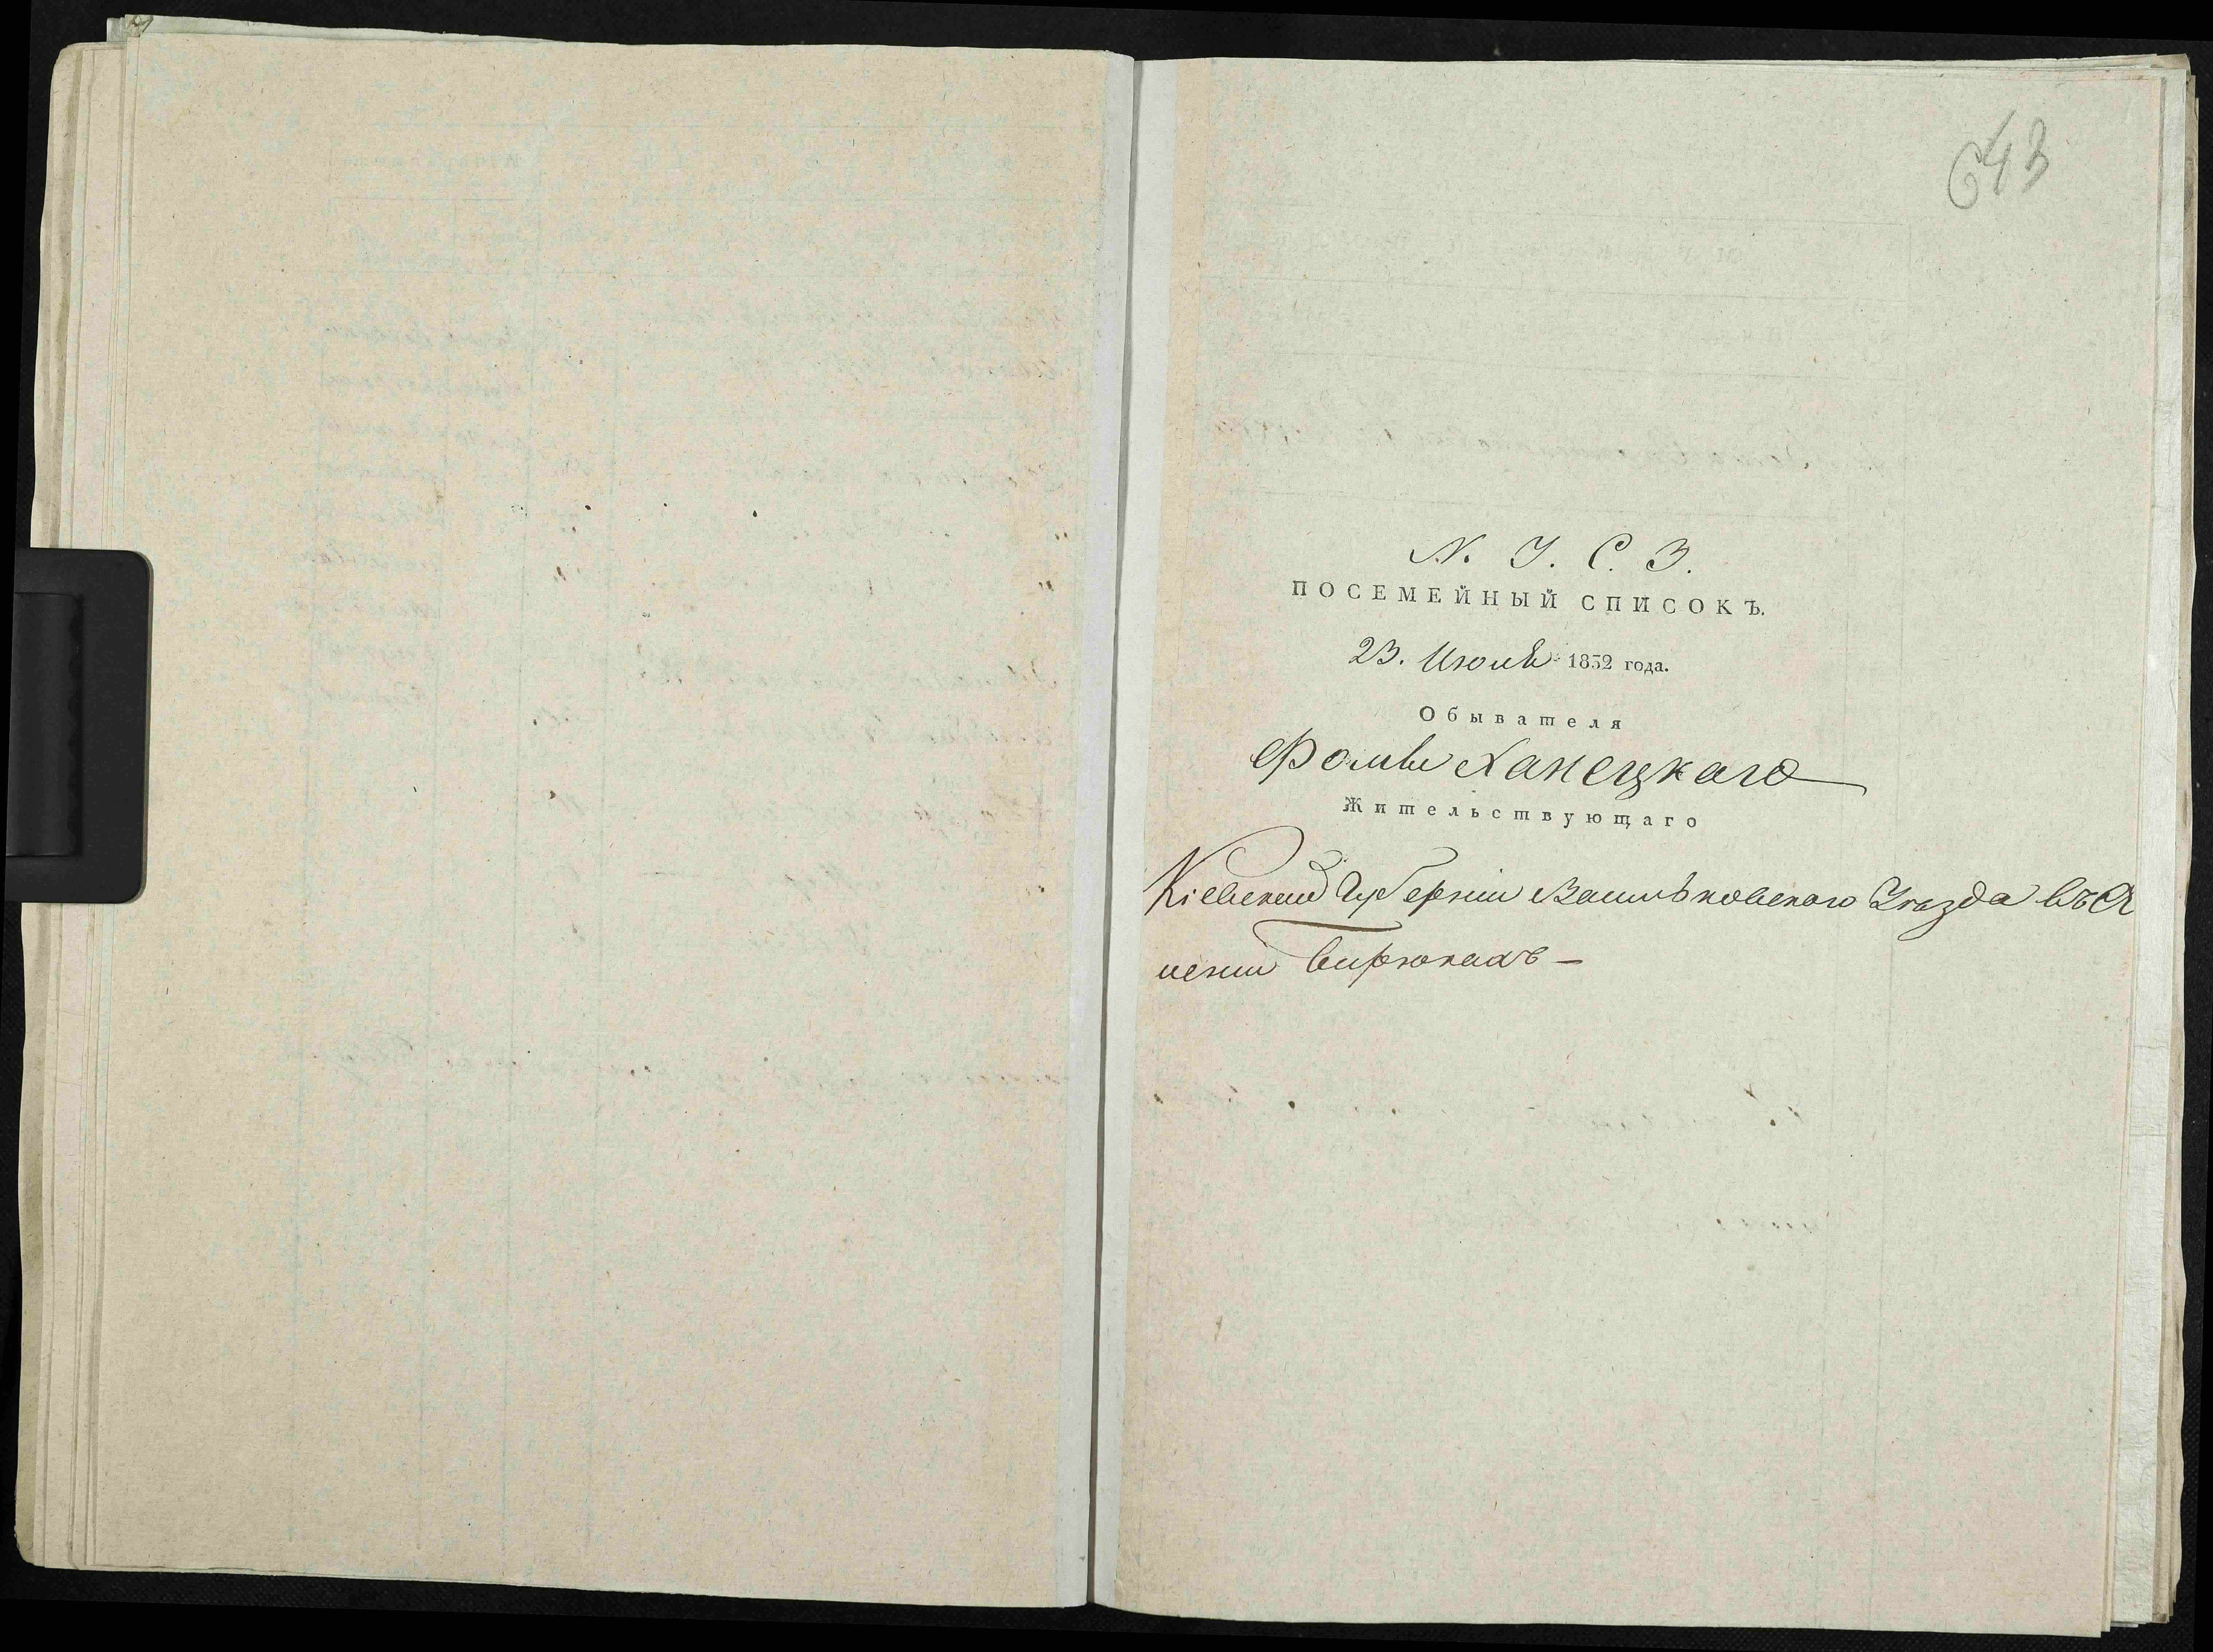 643
N. У. С. З.
ПОСЕМЕЙНЫЙ СПИСОКЪ.
23. Июля 1832 года.
Обывателя
Фомы Ханецкаго
Жительствующаго
Кіевской Губерніи Васильковского Уѣзда въ
Бирюкахъ —